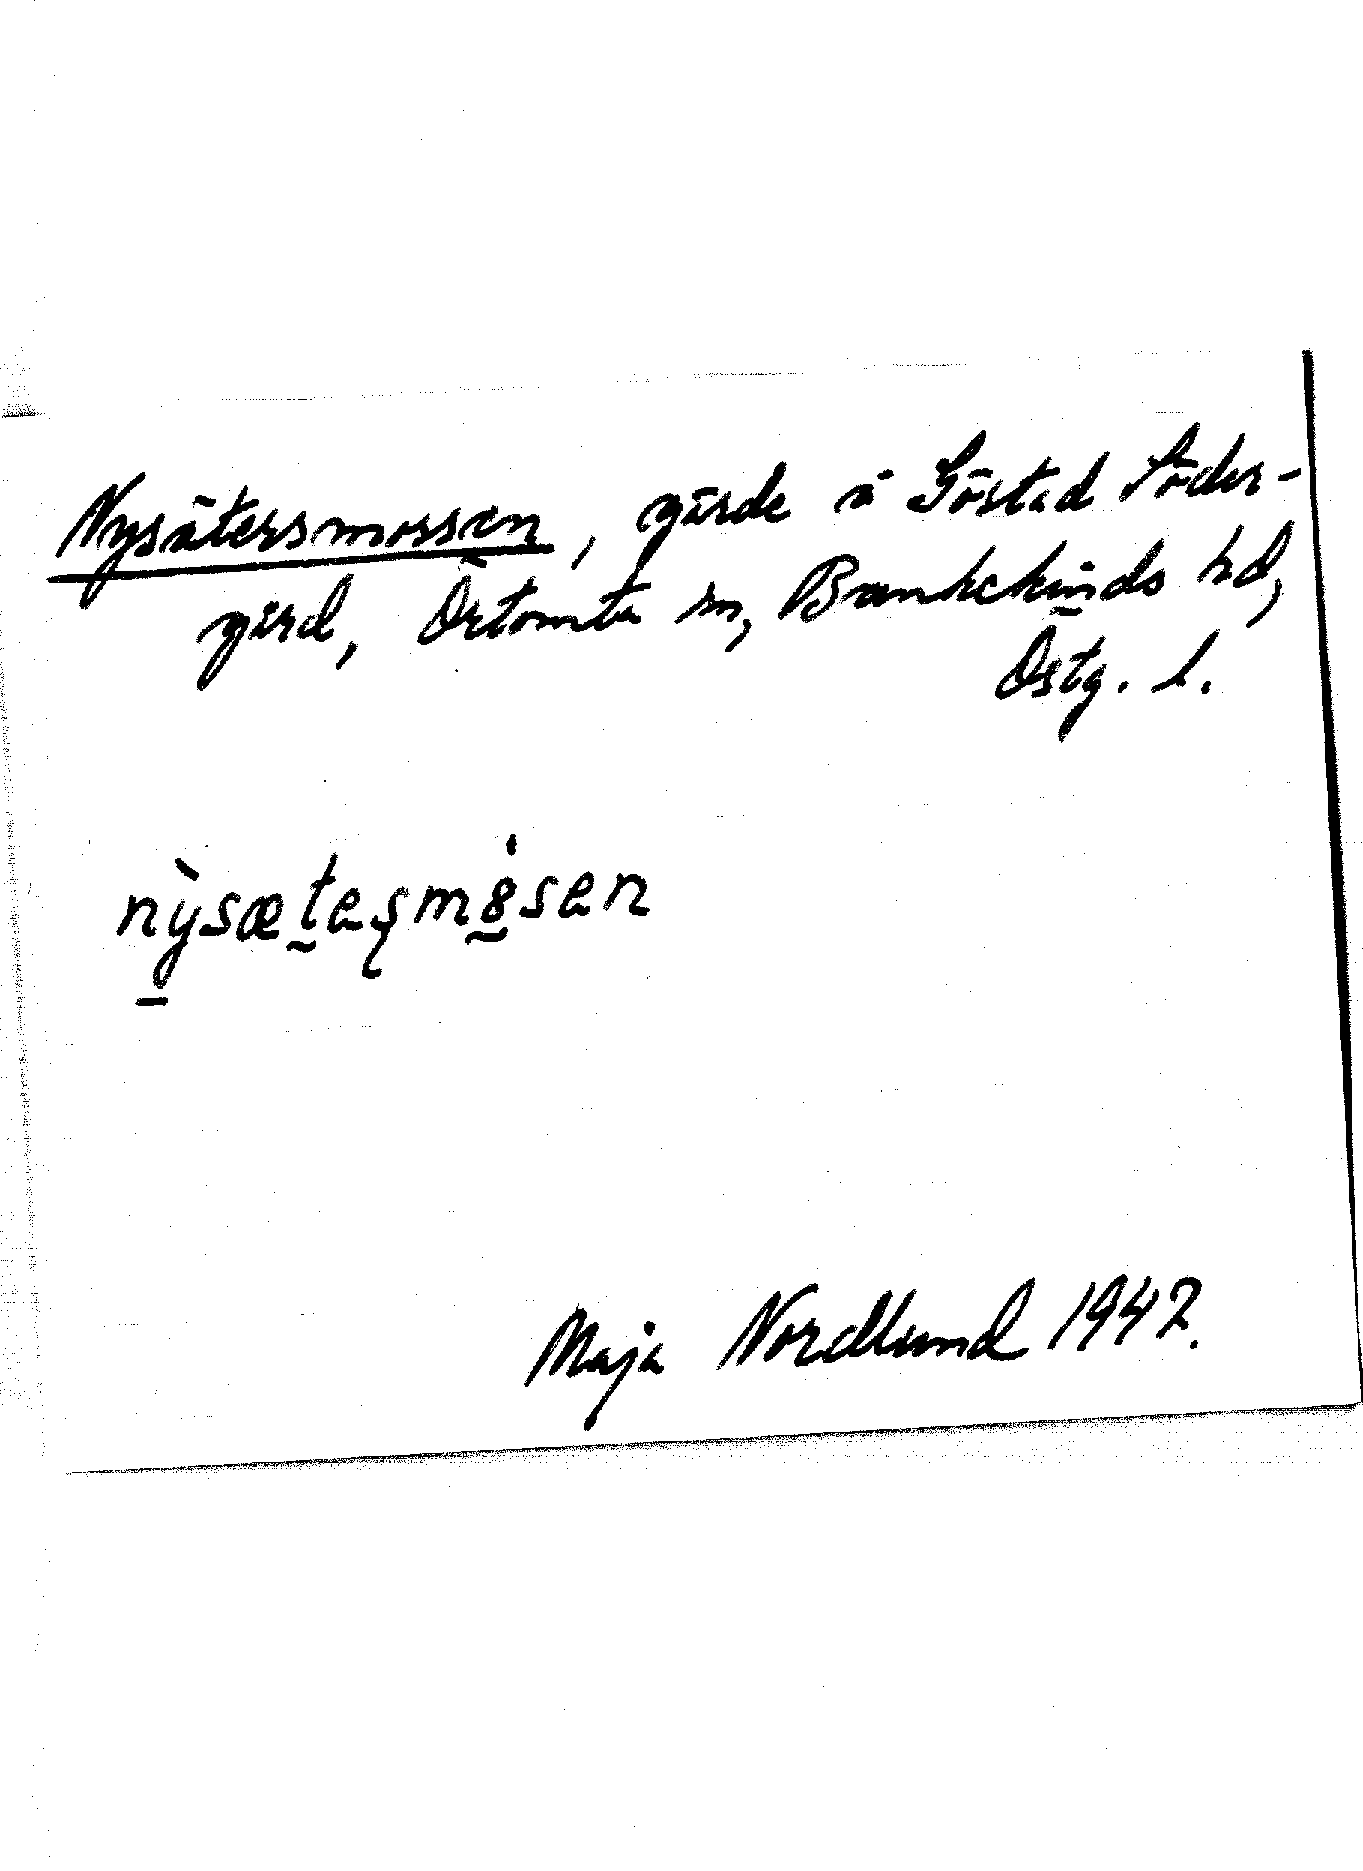 Nysätersmossen, gärde å Göstad Söder-
gärd, Örtomta sn, Bankekinds hd,
Östg. l.
nỳsætes̨m8́sen
Maja Nordlund 1942.